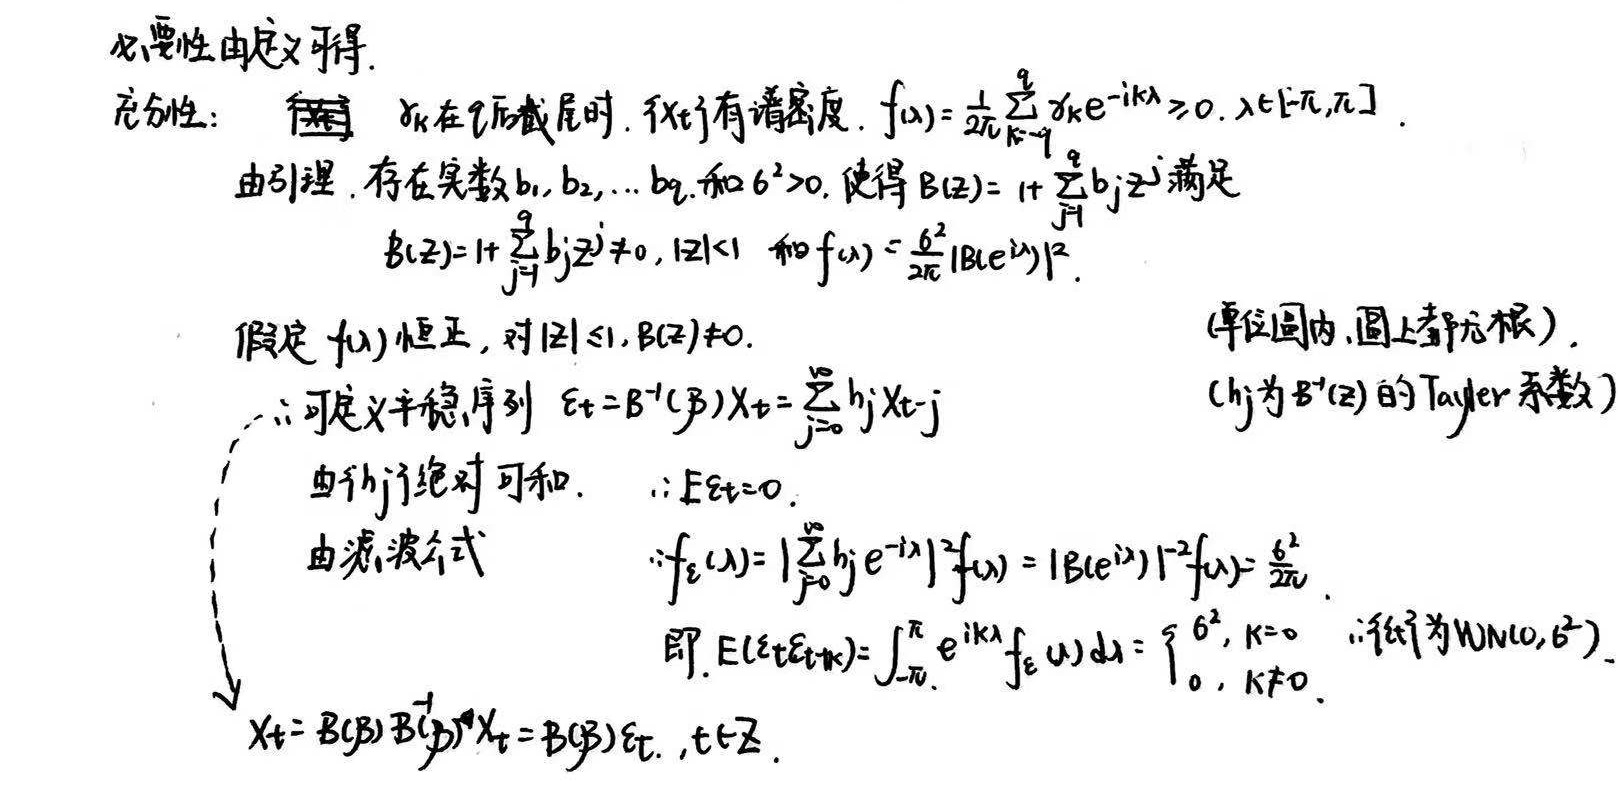 必要性由定义可得.
充分性: γₖ在q后截尾时. {Xt}有谱密度. f(λ)=1/2π Σ_{k=-q}^{q} γₖe^{-ikλ} ≥0. λ∈[-π,π].
由引理. 存在实数b₁, b₂, ... bq. 和σ²>0, 使得B(z)= 1+ Σ_{j=1}^{q} bⱼzʲ满足
B(z)=1+ Σ_{j=1}^{q} bⱼzʲ≠0, |z|<1 和 f(λ) = σ²/2π |B(e^{iλ})|².
假定 f(λ)恒正, 对|z|≤1, B(z)≠0. (单位圆内,圆上都无根).
∴可定义平稳序列 εt=B⁻¹(β)Xt= Σ_{j=0}^{∞} hⱼXt-j (hj为B⁻¹(z)的Tayler系数)
由{hj}绝对可和. ∴Eεt=0.
由滤波公式 ∴f_ε(λ)= |Σ_{j=0}^{∞} hⱼe^{-iλ}|²f(λ) = |B(e^{iλ})|⁻²f(λ)= σ²/2π.
即. E(εtεt+k)= ∫_{-π}^{π} e^{ikλ} f_ε(λ)dλ = { σ², k=0 0, k≠0. ∴{εt}为WN(0,σ²).
Xt= B(β)B⁻¹(β)Xt=B(β)εt. , t∈Z.